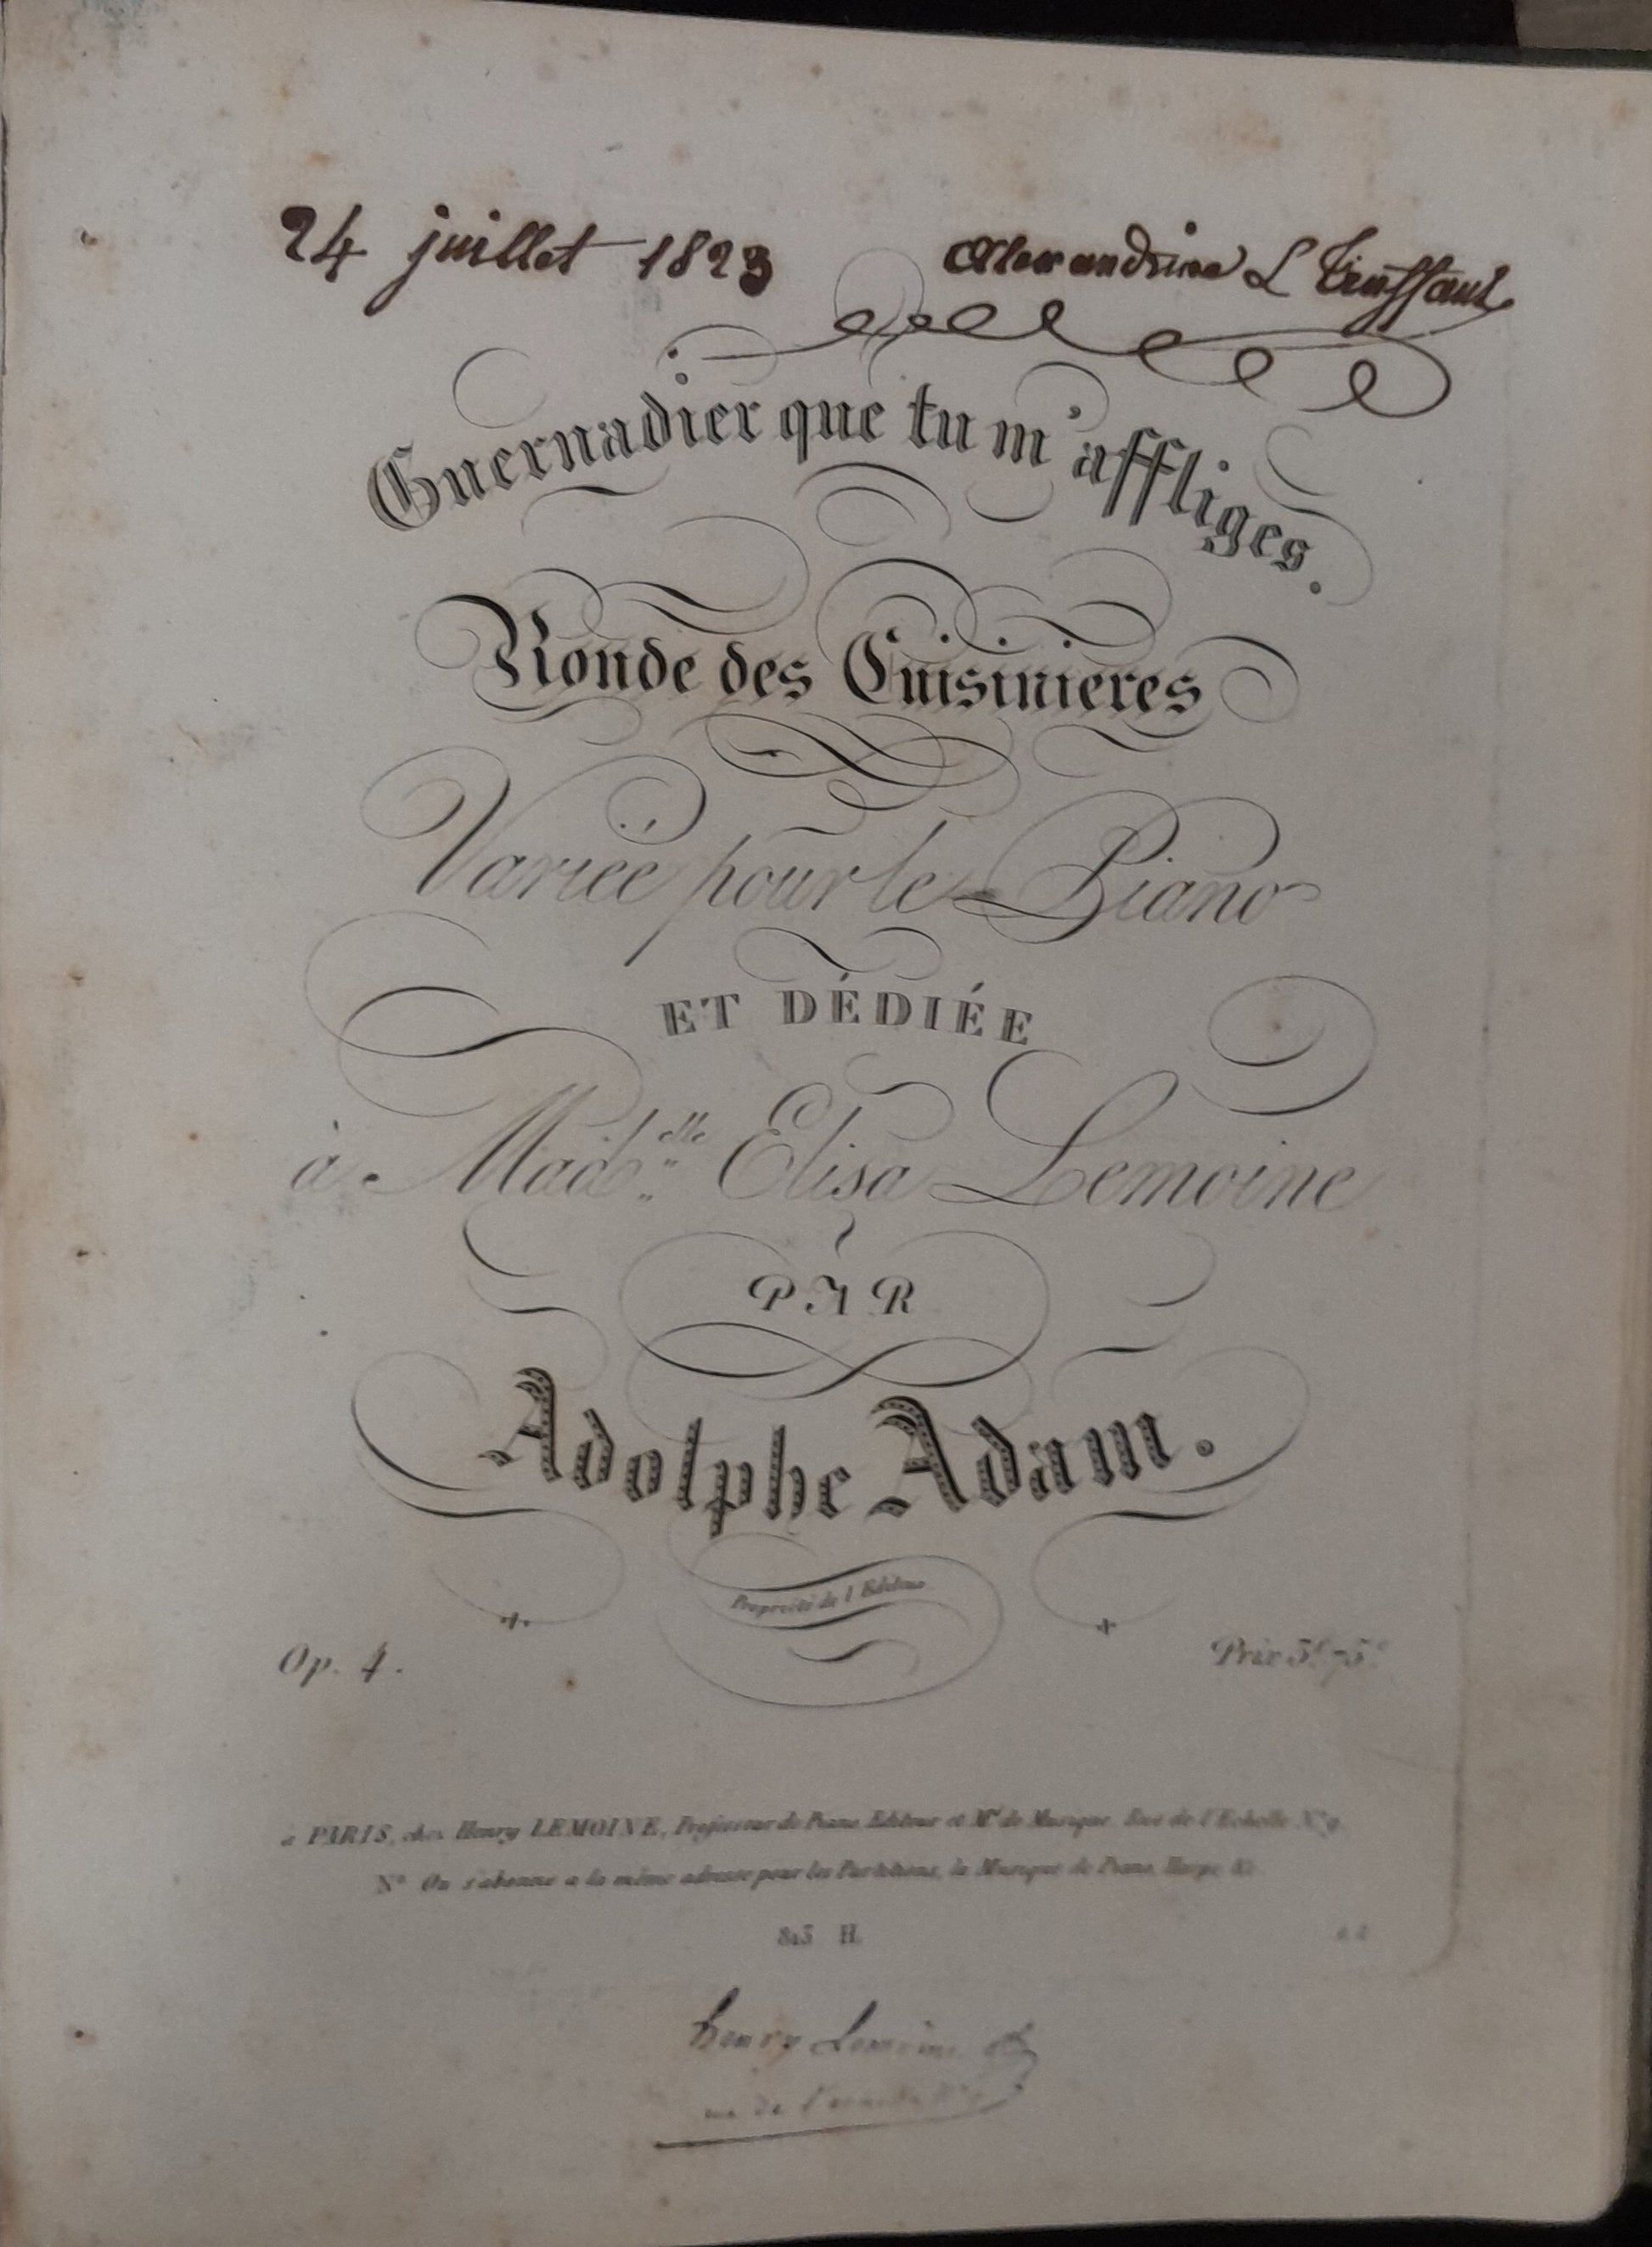 24 juillet 1823 Alexandrine L
Guernadier que tu m'affliges.
Ronde des Cuisinieres
Variée pour le Piano
ET DÉDIÉE
à Mad.elle Elisa Lemoine
PAR
Adolphe Adam.
Propriété de l'Editeur
Op. 4. Prix
à PARIS, chez Henry LEMOINE, Professeur de Piano, Editeur et Md de Musique, Rue de l'Echelle No 9.
Na On s'abonne a la même adresse pour les Partitions, la Musique de Piano, Harpe, &c.
H.
Henry Lemoine
rue de l'echelle No 9